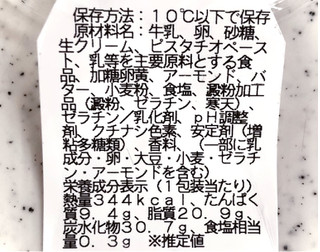 保存方法：１０℃以下で保存
原材料名：牛乳、卵、砂糖、
生クリーム、ピスタチオペース
ト、乳等を主要原料とする食
品、加糖卵黄、アーモンド、バ
ター、小麦粉、食塩、澱粉加工
品（澱粉、ゼラチン、寒天）、
ゼラチン／乳化剤、ｐＨ調整
剤、クチナシ色素、安定剤（増
粘多糖類）、香料、（一部に乳
成分・卵・大豆・小麦・ゼラチ
ン・アーモンドを含む）
栄養成分表示（１包装当たり）
熱量３４４ｋｃａｌ、たんぱく
質９．４ｇ、脂質２０．９ｇ、
炭水化物３０．７ｇ、食塩相当
量０．３ｇ　※推定値